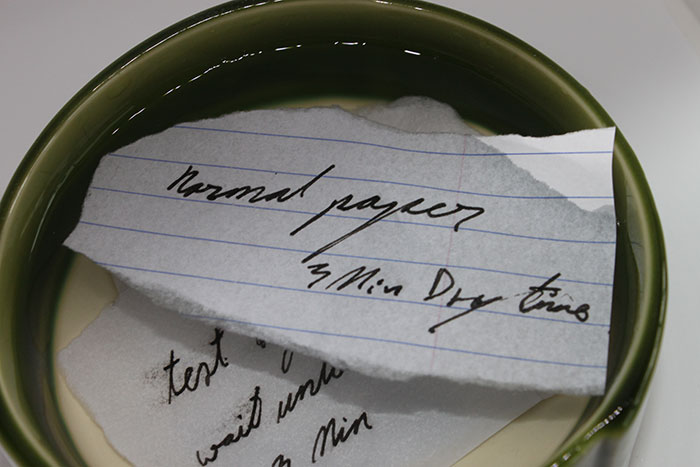 Normal paper
3 Min Dry time
test
wait until
3 Min